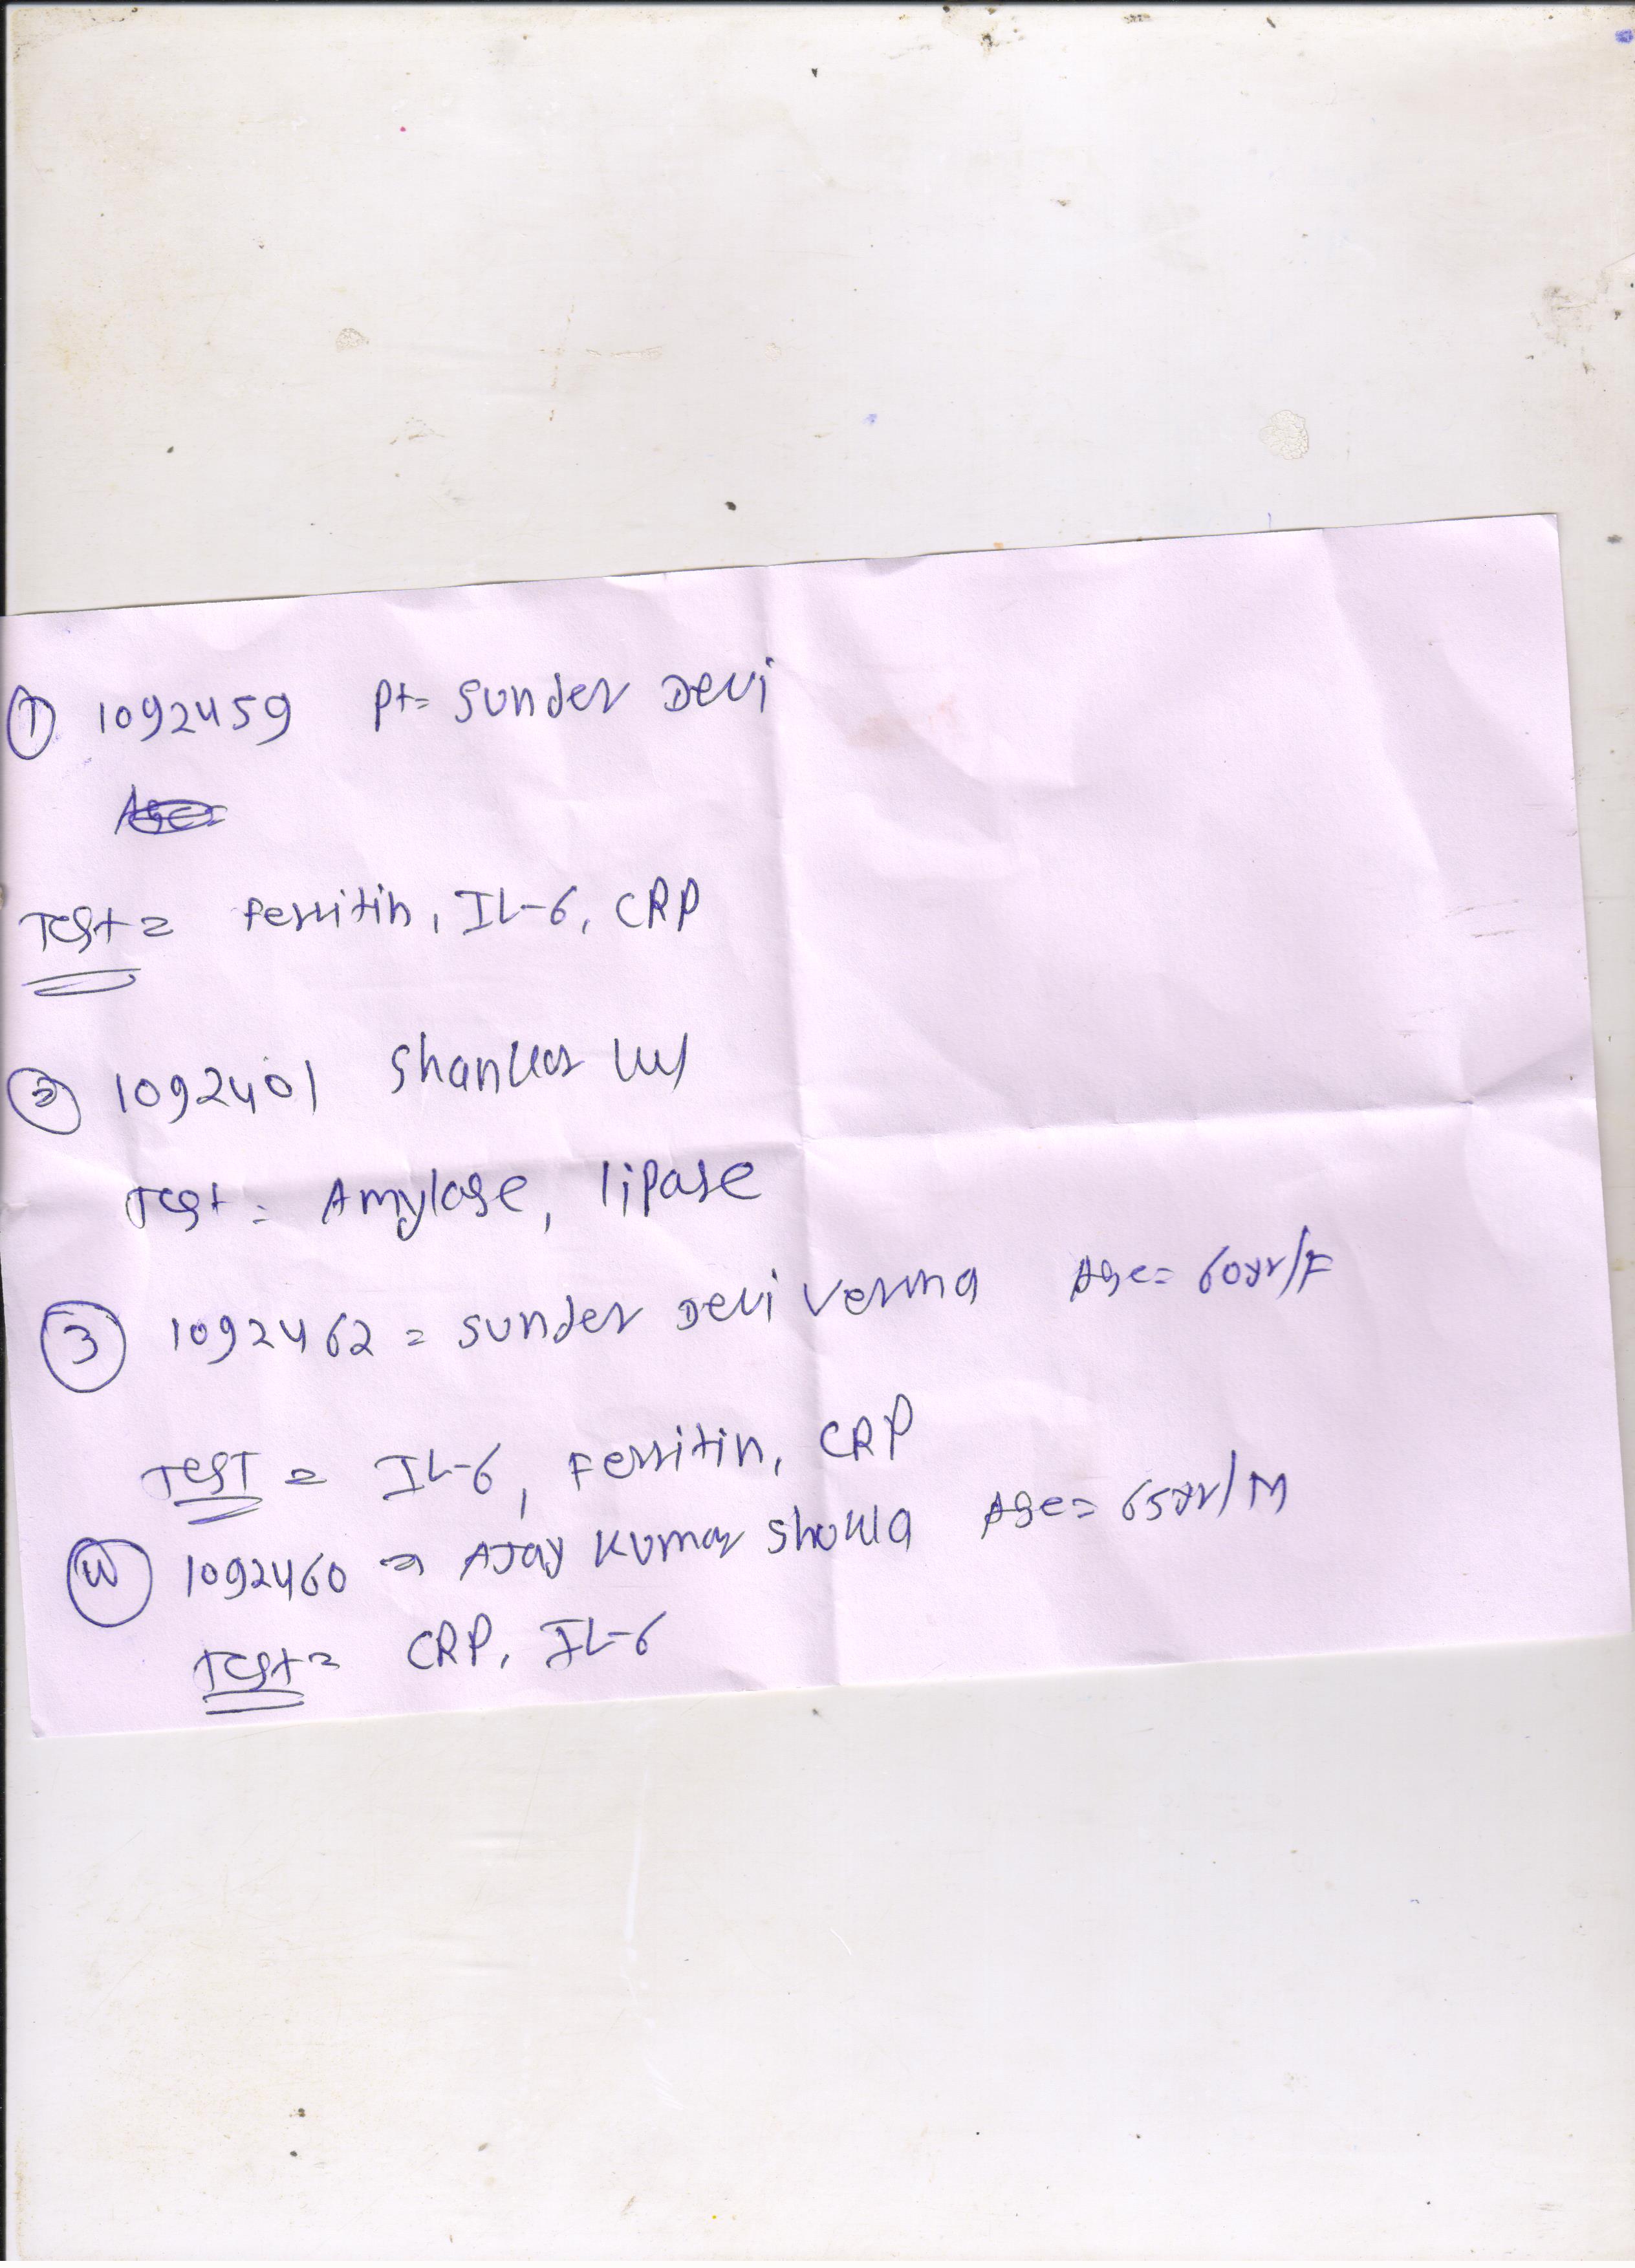 ① 1092459 Pt= Sunder Devi
Test= ferritin, IL-6, CRP
② 1092401 Shanker
Test= Amylase, lipase
③ 1092462 = Sunder Devi Verma Age= 60yr/F
TEST = IL-6, Ferritin, CRP
④ 1092460 => AJay Kumar Shukla Age= 65yr/M
Test= CRP, IL-6